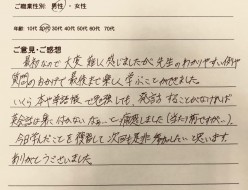 ご職業性別: 男性・女性
年齢: 10代 20代 30代 40代 50代 60代 70代
ご意見・ご感想
最初なので大変難しく感じましたが、先生のわかりやすい例や
質問のおかげで最後まで楽しく学ぶことができました。
いくら本や単語帳で勉強しても、発言することがなければ
英会話は身に付かないな…と痛感しました(当たり前ですが…)
今日学んだことを復習して次回も是非参加したいと思います。
ありがとうございました。